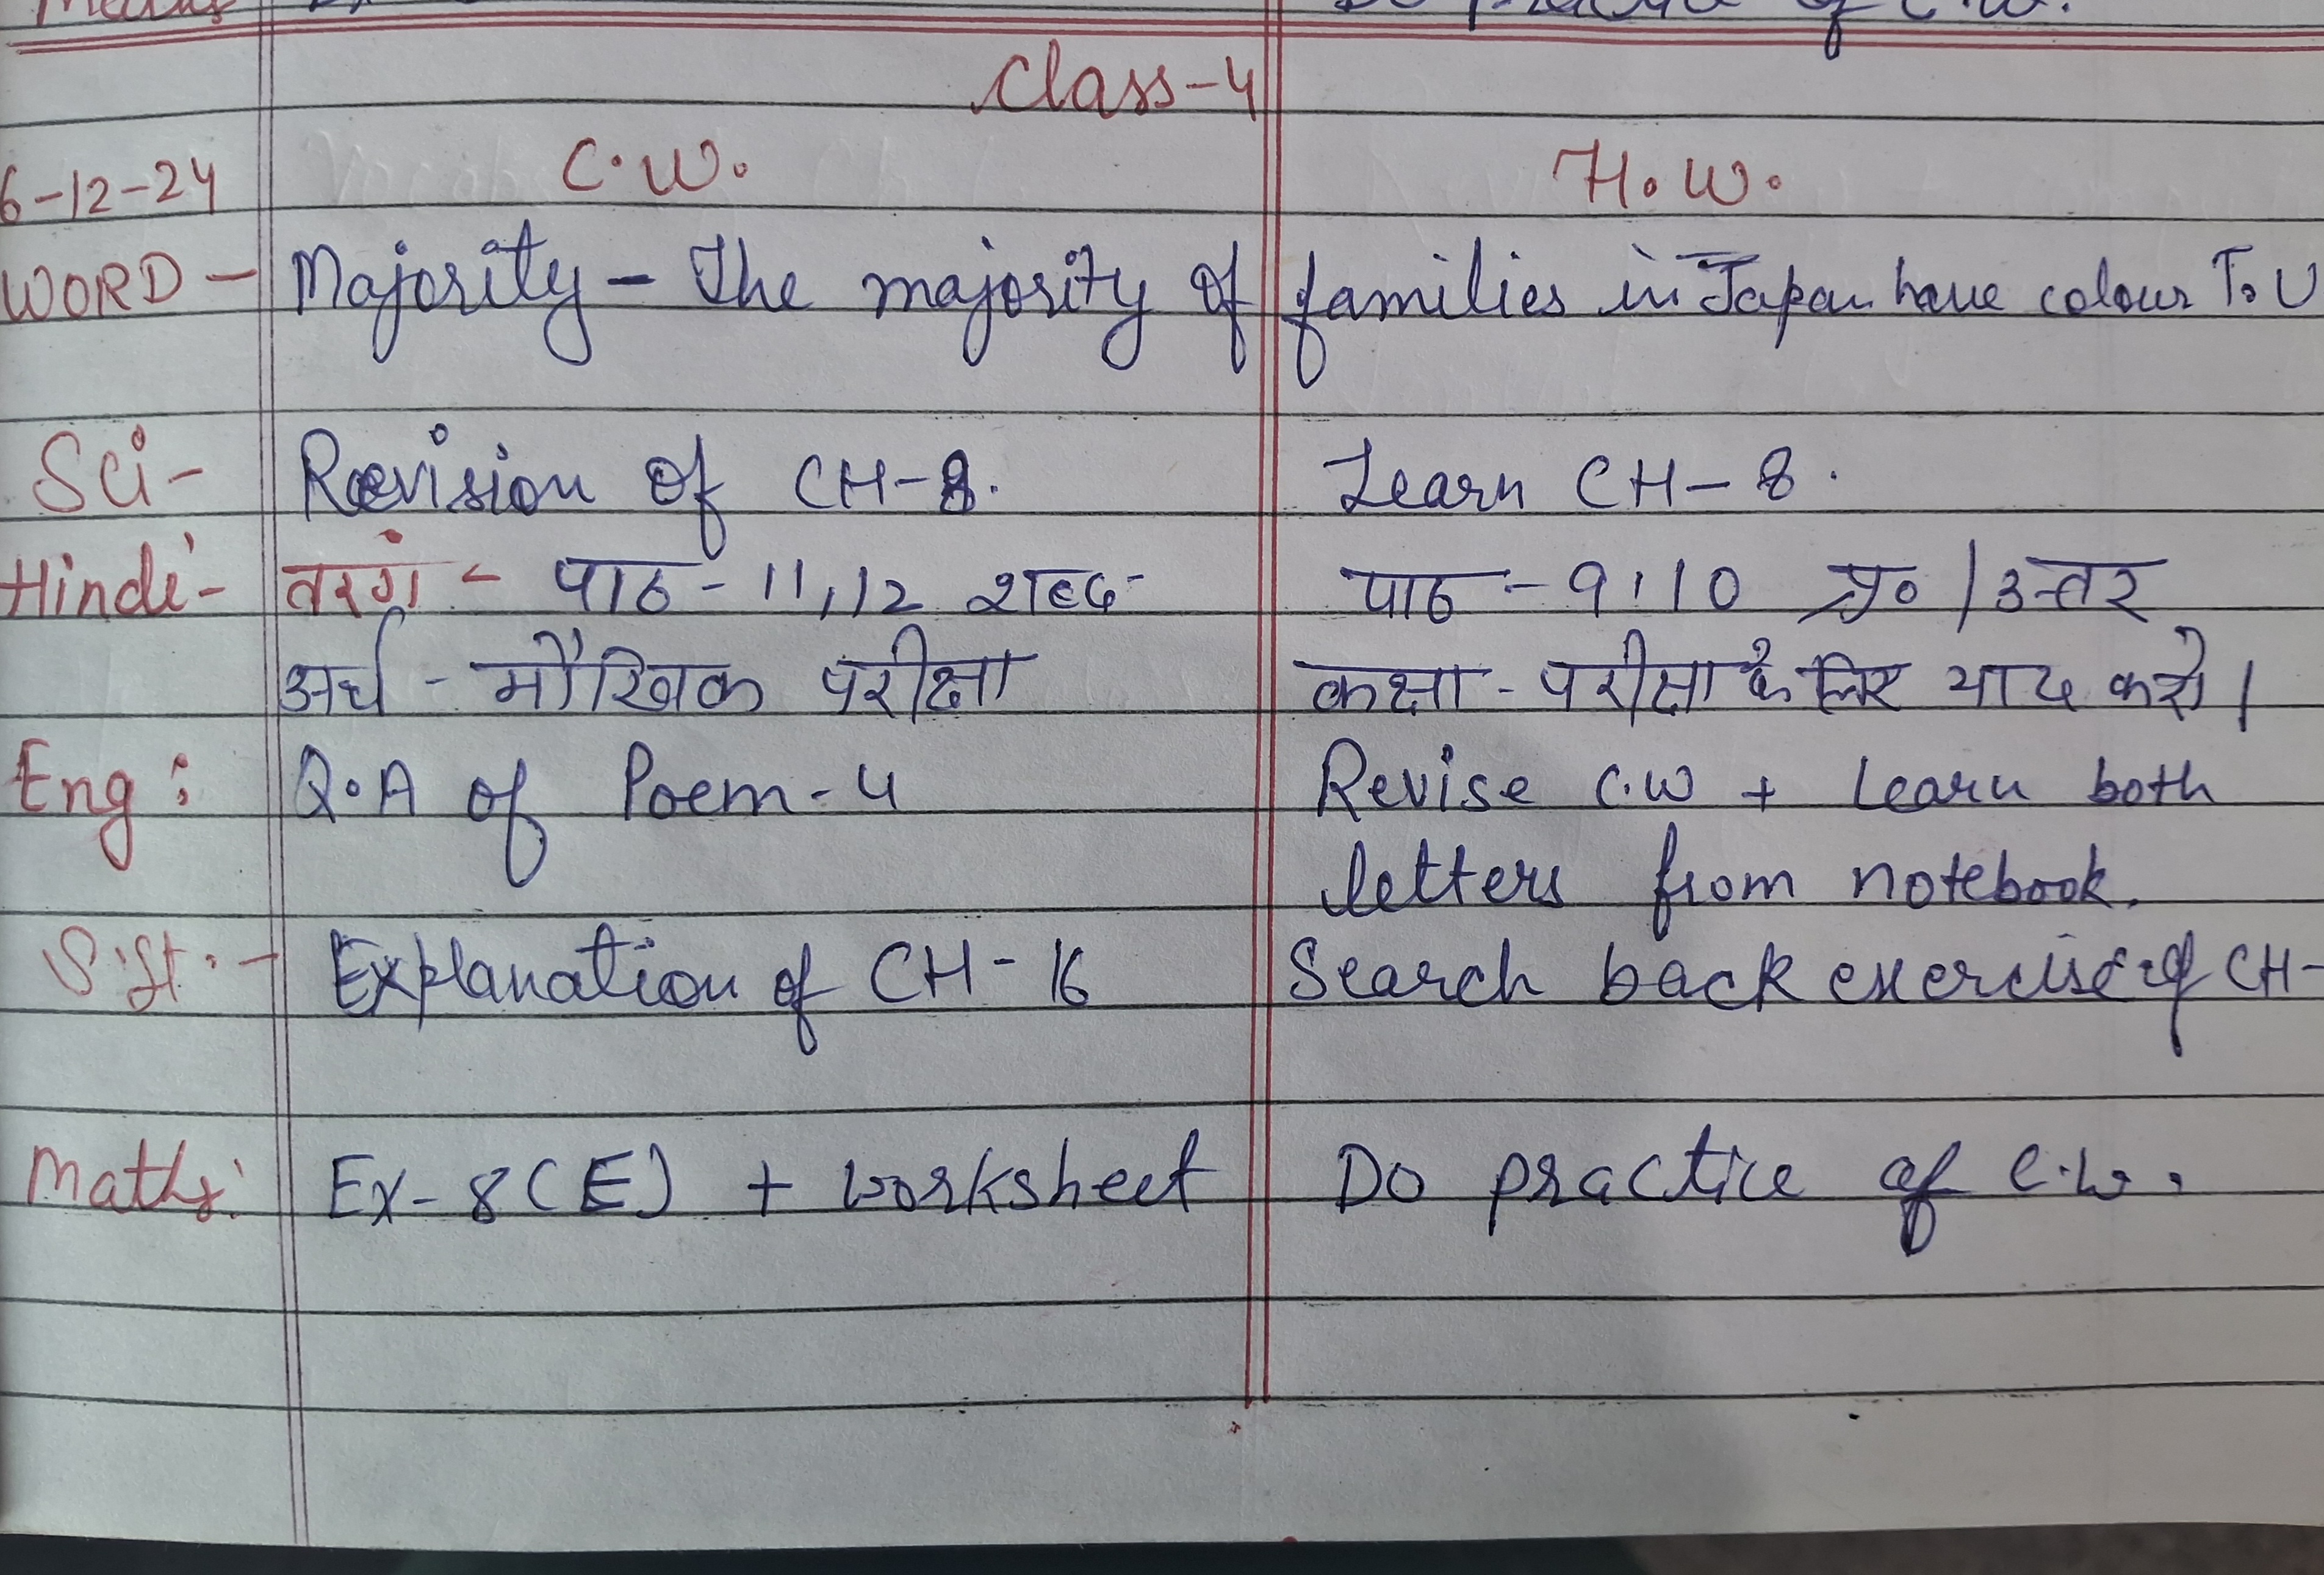 Do practice of C.W.
Class-4
6-12-24 C.W. H.W.
WORD - Majority - The majority of families in Japan have colour T.V
Sci- Revision of CH-8. Learn CH-8.
Hindi- तरंग - पाठ - 11,12 शब्द- पाठ - 9,10 प्र० / उत्तर
अर्थ - मौखिक परीक्षा कक्षा - परीक्षा के लिए याद करो।
Eng: Q.A of Poem-4 Revise C.W + Learn both
letters from notebook.
S.St.- Explanation of CH-16 Search back exercise of CH-
Maths: Ex-8(E) + worksheet Do practice of C.W.